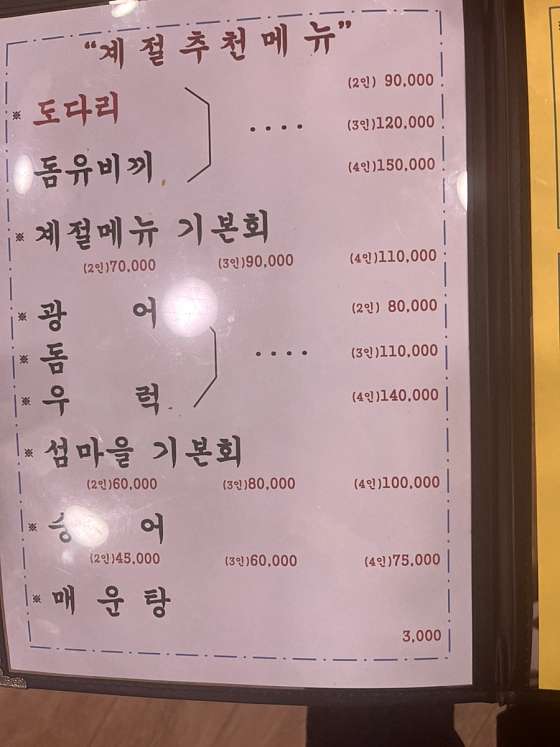 “계절추천메뉴”
※ 도다리
돔유비끼
(2인) 90,000
···· (3인)120,000
(4인)150,000
※ 계절메뉴 기본회
(2인)70,000 (3인)90,000 (4인)110,000
※ 광 어
※ 돔
※ 우 럭
(2인) 80,000
···· (3인)110,000
(4인)140,000
※ 섬마을 기본회
(2인)60,000 (3인)80,000 (4인)100,000
※ 숭 어
(2인)45,000 (3인)60,000 (4인)75,000
※ 매 운 탕
3,000